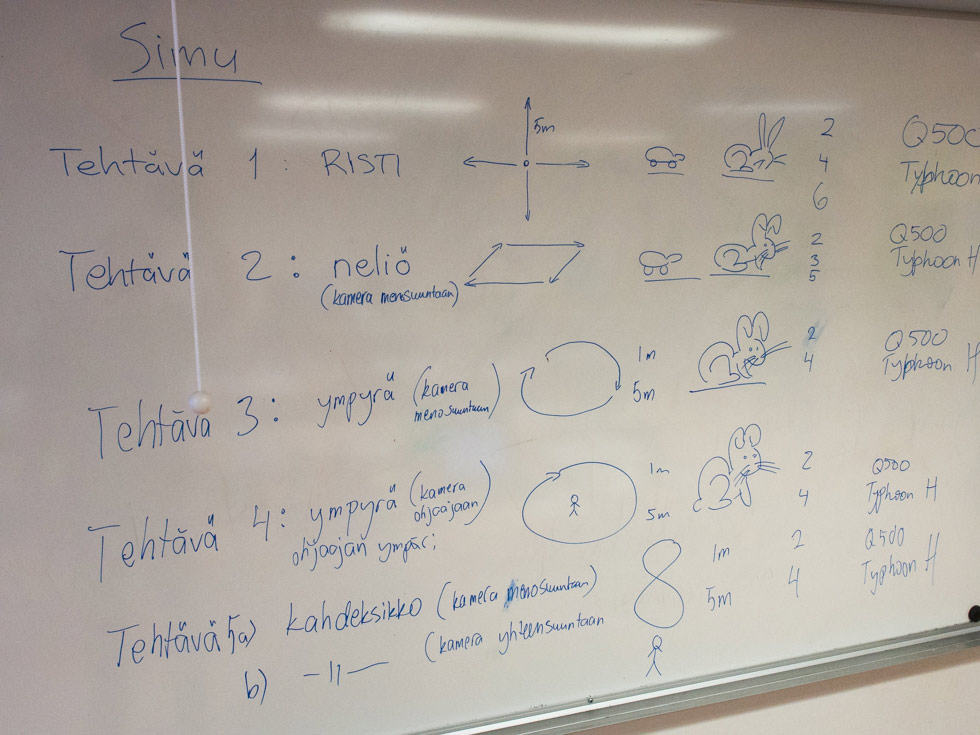 Simu
Tehtävä 1: RISTI
5m
2
4
6
Q500
Typhoon
Tehtävä 2: neliö
(kamera menosuuntaan)
2
3
5
Q500
Typhoon H
Tehtävä 3: ympyrä (kamera menosuuntaan)
1m
5m
2
4
Q500
Typhoon H
Tehtävä 4: ympyrä (kamera ohjaajaan)
ohjaajan ympäri
1m
5m
2
4
Q500
Typhoon H
Tehtävä 5a) kahdeksikko (kamera menosuuntaan)
1m
5m
2
4
Q500
Typhoon H
b) -11- (kamera yhteensuuntaan